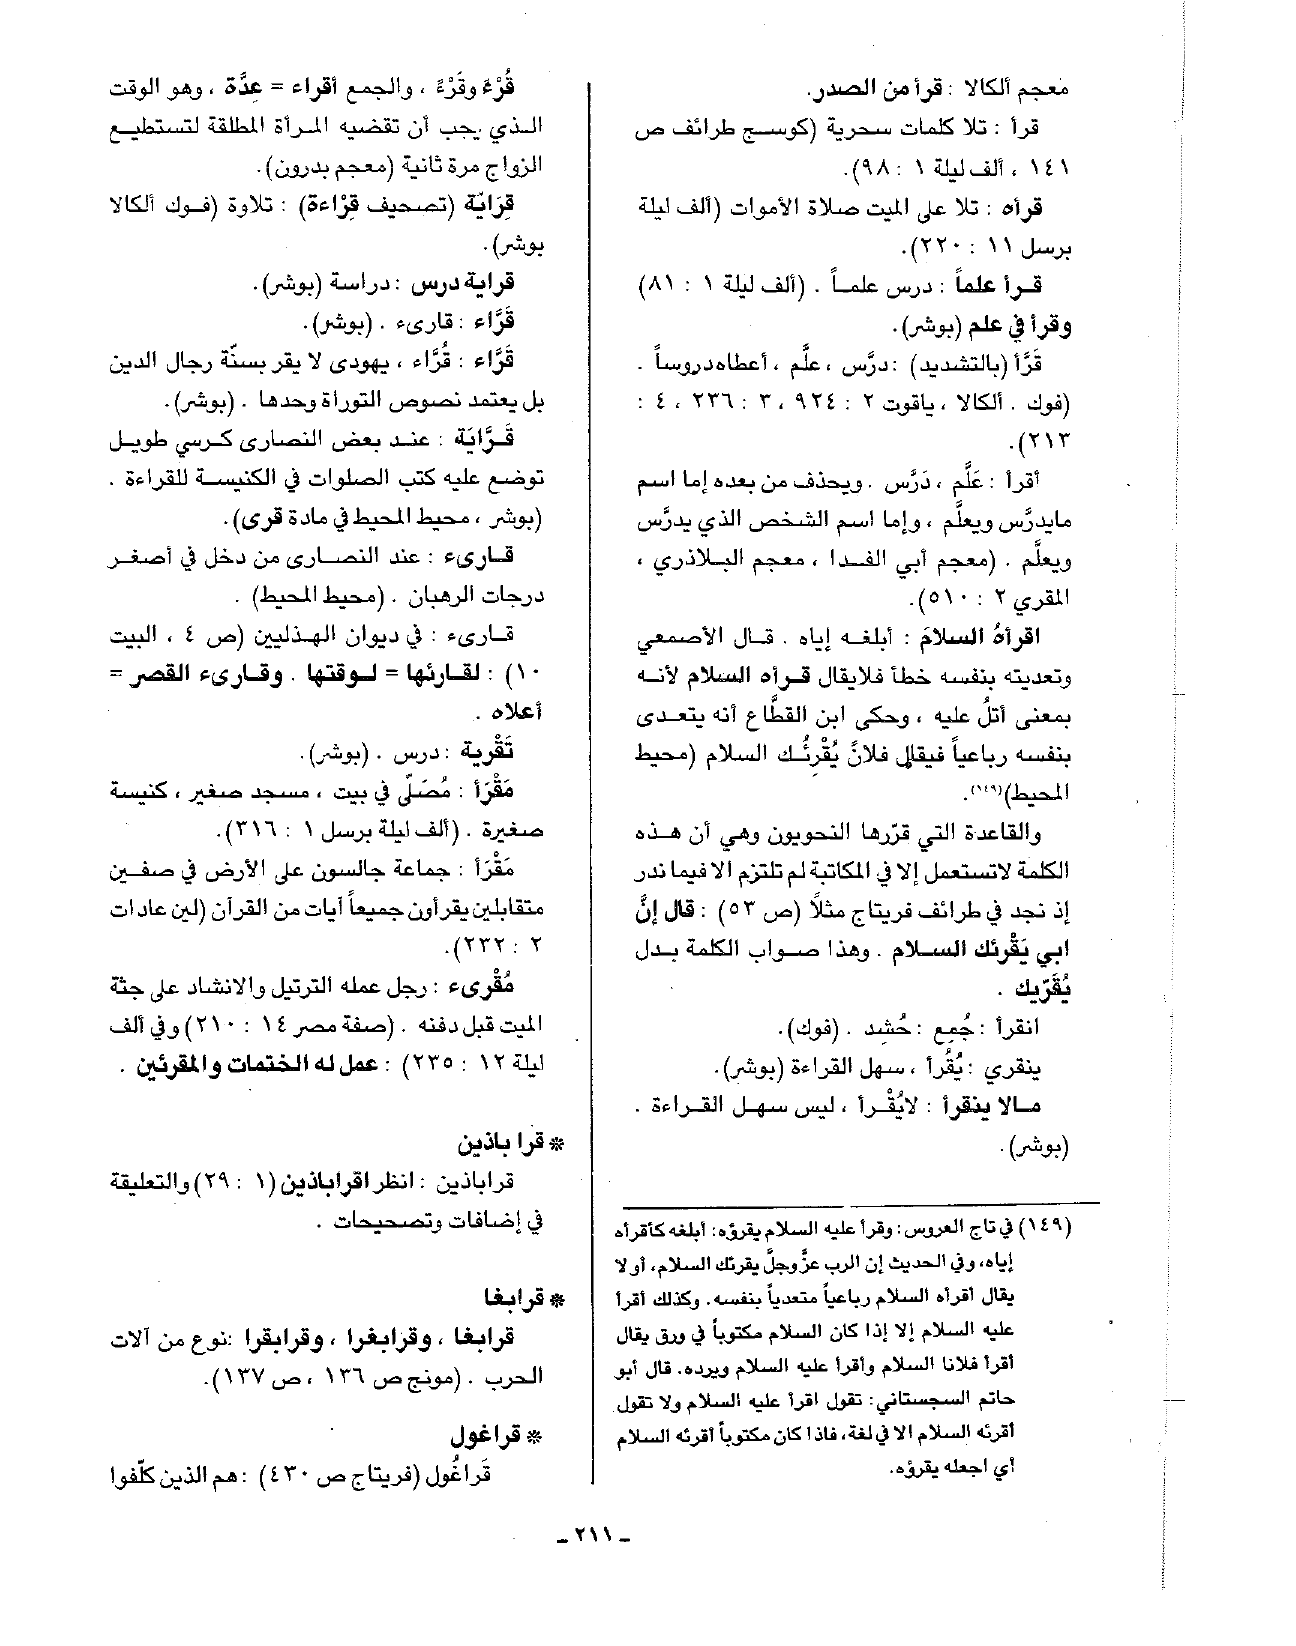 معجم ألكالا : قرأ من الصدر.
قرأ : تلا كلمات سحرية (كوسج طرائف ص
١٤١ ، ألف ليلة ١ : ٩٨).
قرأه : تلا على الميت صلاة الأموات (ألف ليلة
برسل ١١ : ٢٢٠).
قـرأ علماً : درس علمـاً . (ألف ليلة ١ : ٨١)
وقرأ في علم (بوشر).
قَرَّأ (بالتشديد) : درَّس ، علَّم ، أعطاه دروساً .
(فوك . ألكالا ، ياقوت ٢ : ٩٢٤ ، ٣ : ٢٣٦ ، ٤ :
٢١٣).
أقرأ : عَلَّم ، دَرَّس . ويحذف من بعده إما اسم
مايدرَّس ويعلَّم ، وإما اسم الشخص الذي يدرَّس
ويعلَّم . (معجم أبي الفـدا ، معجم البـلاذري ،
المقري ٢ : ٥١٠).
اقرأهُ السلامَ : أبلغه إياه . قـال الأصمعي
وتعديته بنفسه خطأ فلايقال قـرأه السلام لأنـه
بمعنى أتلُ عليه ، وحكى ابن القطَّاع أنه يتعـدى
بنفسه رباعياً فيقال فلانٌ يُقْرئُـك السلام (محيط
المحيط)(١٤٩).
والقاعدة التي قرّرها النحويون وهي أن هـذه
الكلمة لاتستعمل إلا في المكاتبة لم تلتزم الا فيما ندر
إذ نجد في طرائف فريتاج مثلاً (ص ٥٣) : قال إنَّ
ابي يَقْرئك السـلام . وهذا صـواب الكلمة بـدل
يُقَرّيك .
انقرأ : جُمع : حُشد . (فوك).
ينقري : يُقْرأ ، سهل القراءة (بوشر).
مـالا ينقرأ : لايُقْـرأ ، ليس سهـل القـراءة .
(بوشر).
(١٤٩) في تاج العروس: وقرأ عليه السلام يقرؤه: أبلغه كأقرأه
إياه، وفي الحديث إن الرب عزَّ وجلَّ يقرئك السلام، أو لا
يقال أقرأه السلام رباعياً متعدياً بنفسه. وكذلك أقرأ
عليه السلام إلا إذا كان السلام مكتوباً في ورق يقال
أقرأ فلانا السلام وأقرأ عليه السلام ويرده. قال أبو
حاتم السجستاني: تقول اقرأ عليه السلام ولا تقول
أقرئه السلام الا في لغة، فاذا كان مكتوباً أقرئه السلام
أي اجعله يقرؤه.
قُرْءٌ وقَرْءٌ ، والجمع أقراء = عِدَّة ، وهو الوقت
الـذي يجب أن تقضيه المـرأة المطلقة لتستطيـع
الزواج مرة ثانية (معجم بدرون).
قِرَايَة (تصحيف قِرْاءة) : تلاوة (فوك ألكالا
بوشر).
قراية درس : دراسة (بوشر).
قَرَّاء : قارىء . (بوشر).
قَرَّاء : قُرَّاء ، يهودى لا يقر بسنّة رجال الدين
بل يعتمد نصوص التوراة وحدها . (بوشر).
قَـرَّايَة : عنـد بعض النصارى كـرسي طويـل
توضع عليه كتب الصلوات في الكنيسـة للقراءة .
(بوشر ، محيط المحيط في مادة قرى).
قـارىء : عند النصـارى من دخل في أصغـر
درجات الرهبان . (محيط المحيط) .
قـارىء : في ديوان الهـذليين (ص ٤ ، البيت
١٠) : لقـارئها = لـوقتها . وقـارىء القصر =
أعلاه .
تَقْرِية : درس . (بوشر).
مَقْرَأ : مُصَلَّى في بيت ، مسجد صغير ، كنيسة
صغيرة . (ألف ليلة برسل ١ : ٣١٦).
مَقْرَأ : جماعة جالسون على الأرض في صفـين
متقابلين يقرأون جميعاً أيات من القرآن (لين عادات
٢ : ٢٣٢).
مُقْرىء : رجل عمله الترتيل والانشاد على جثة
الميت قبل دفنه . (صفة مصر ١٤ : ٢١٠) وفي ألف
ليلة ١٢ : ٢٣٥) : عمل له الختمات والمقرئين .
* قرا باذين
قراباذين : انظر اقراباذين (١ : ٢٩) والتعليقة
في إضافات وتصحيحات .
* قرابغا
قرابغا ، وقرابغرا ، وقرابقرا : نوع من آلات
الحرب . (مونج ص ١٣٦ ، ص ١٣٧).
* قراغول
قَراغُول (فريتاج ص ٤٣٠) : هم الذين كلّفوا
ـ ٢١١ ـ